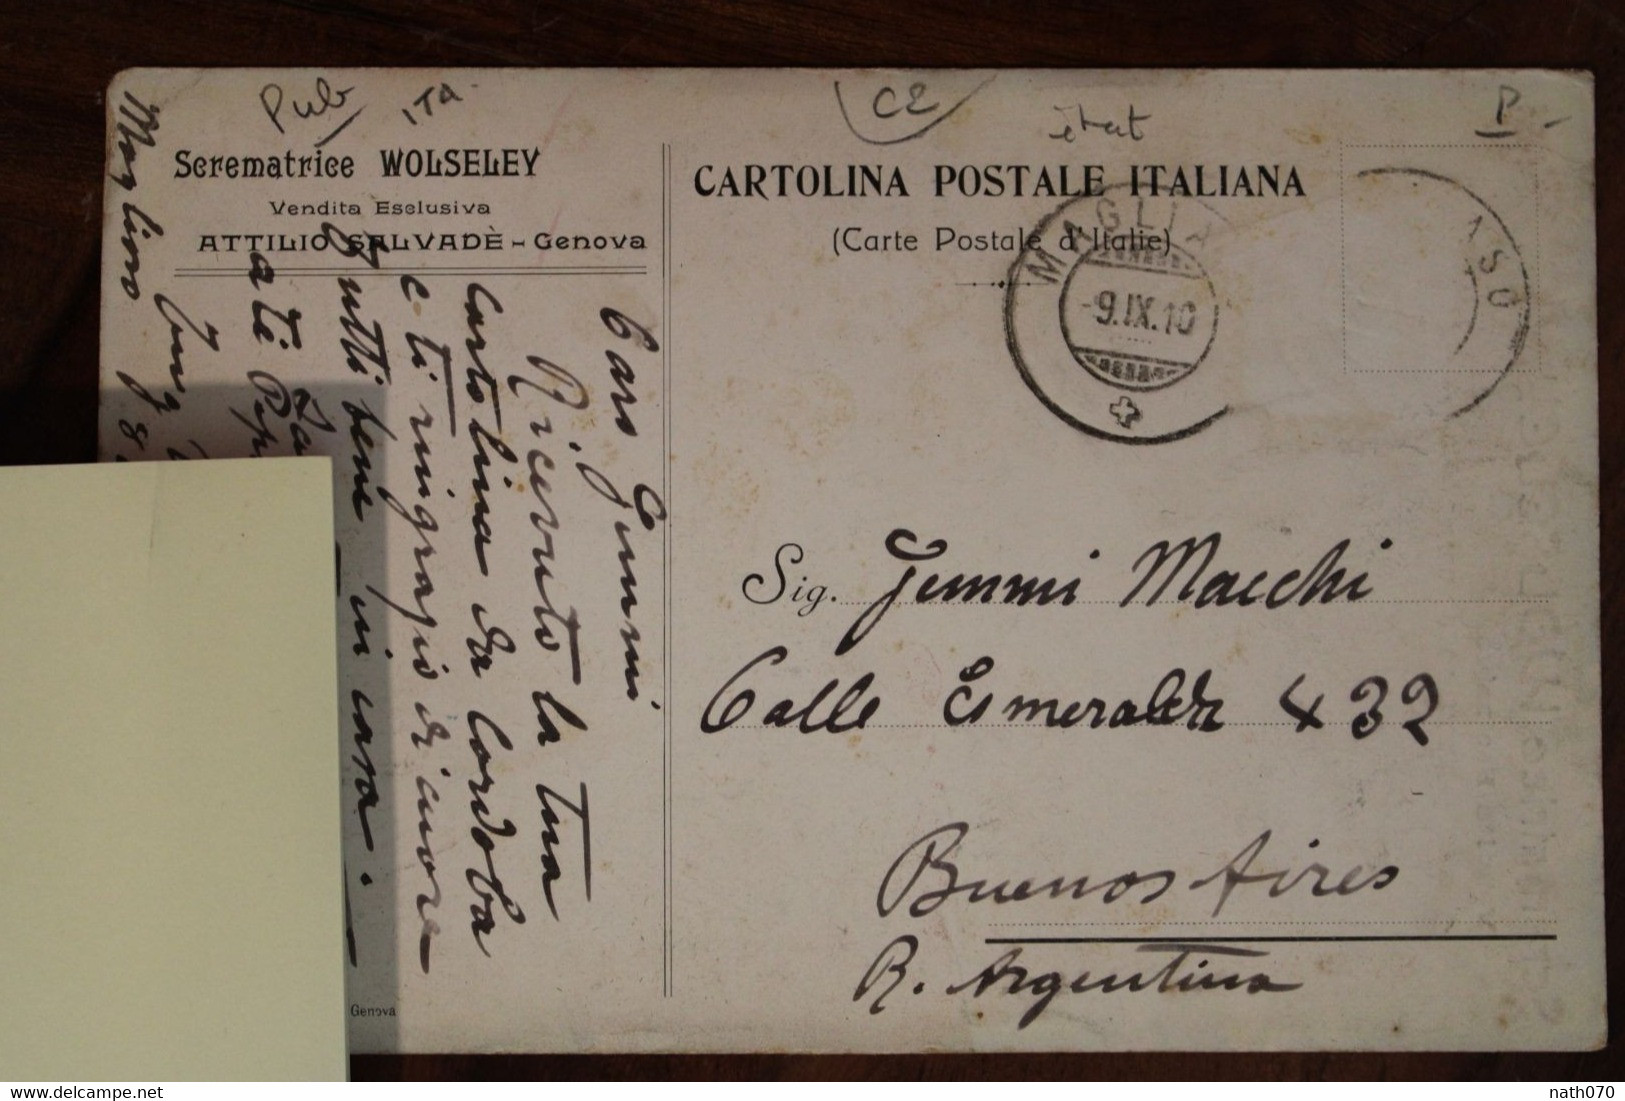 Pub
ITA
CE
état
P
Scrematrice WOLSELEY
Vendita Esclusiva
ATTILIO SALVADÈ - Genova
CARTOLINA POSTALE ITALIANA
(Carte Postale d'Italie)
MAGLI ASO
-9.IX.10
Caro Jemmi
Ricevuto la tua
cartolina da Cordoba
e ti ringrazio di cuore
Tutti bene in casa.
Sig. Jemmi Macchi
Calle Esmeralda 432
Buenos Aires
R. Argentina
Genova
delcampe.net
nath070